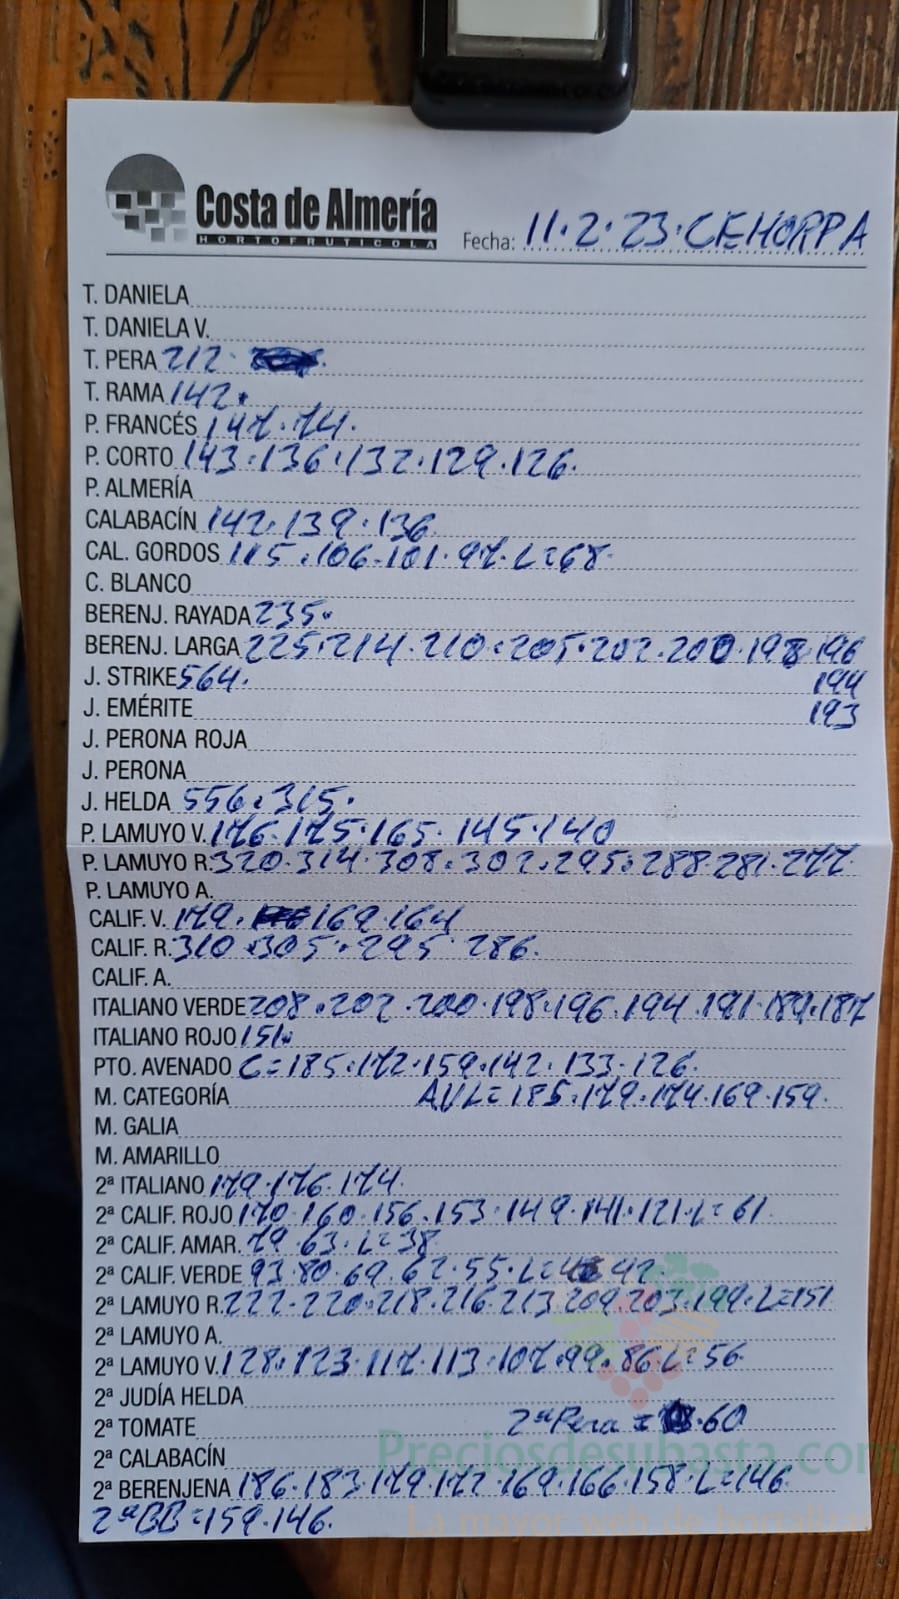 Costa de Almería
HORTOFRUTICOLA
Fecha: 11.2.23.CEHORPA
T. DANIELA
T. DANIELA V.
T. PERA 212.
T. RAMA 142.
P. FRANCÉS 147.74.
P. CORTO 143.136.132.129.126.
P. ALMERÍA
CALABACÍN 142.139.136
CAL. GORDOS 115.106.101.97.L=68
C. BLANCO
BERENJ. RAYADA 235.
BERENJ. LARGA 225.214.210.205.202.200.198.196
J. STRIKE 564. 194
J. EMÉRITE 193
J. PERONA ROJA
J. PERONA
J. HELDA 556.315.
P. LAMUYO V. 176.175.165.145.140
P. LAMUYO R. 320.314.308.302.295.288.281.277
P. LAMUYO A.
CALIF. V. 179. 169.164
CALIF. R. 310.305.295.286.
CALIF. A.
ITALIANO VERDE 208.202.200.198.196.194.191.189.187
ITALIANO ROJO 151.
PTO. AVENADO C=185.172.159.142.133.126.
M. CATEGORÍA AVL=185.179.174.169.159.
M. GALIA
M. AMARILLO
2ª ITALIANO 179.176.174.
2ª CALIF. ROJO 170.160.156.153.149.141.121.L=61.
2ª CALIF. AMAR. 79.63.L=38
2ª CALIF. VERDE 93.80.69.62.55.L= 42
2ª LAMUYO R. 222.220.218.216.213 209 203.199.L=151
2ª LAMUYO A.
2ª LAMUYO V. 128.123.117.113.107.99.86.L=56
2ª JUDÍA HELDA
2ª TOMATE 2ª Pera = .60
2ª CALABACÍN
Preciosdesubasta.com
2ª BERENJENA 186.183.179.172.169.166.158.L=146.
2ª BB=159.146.
La mayor web de hortaliza